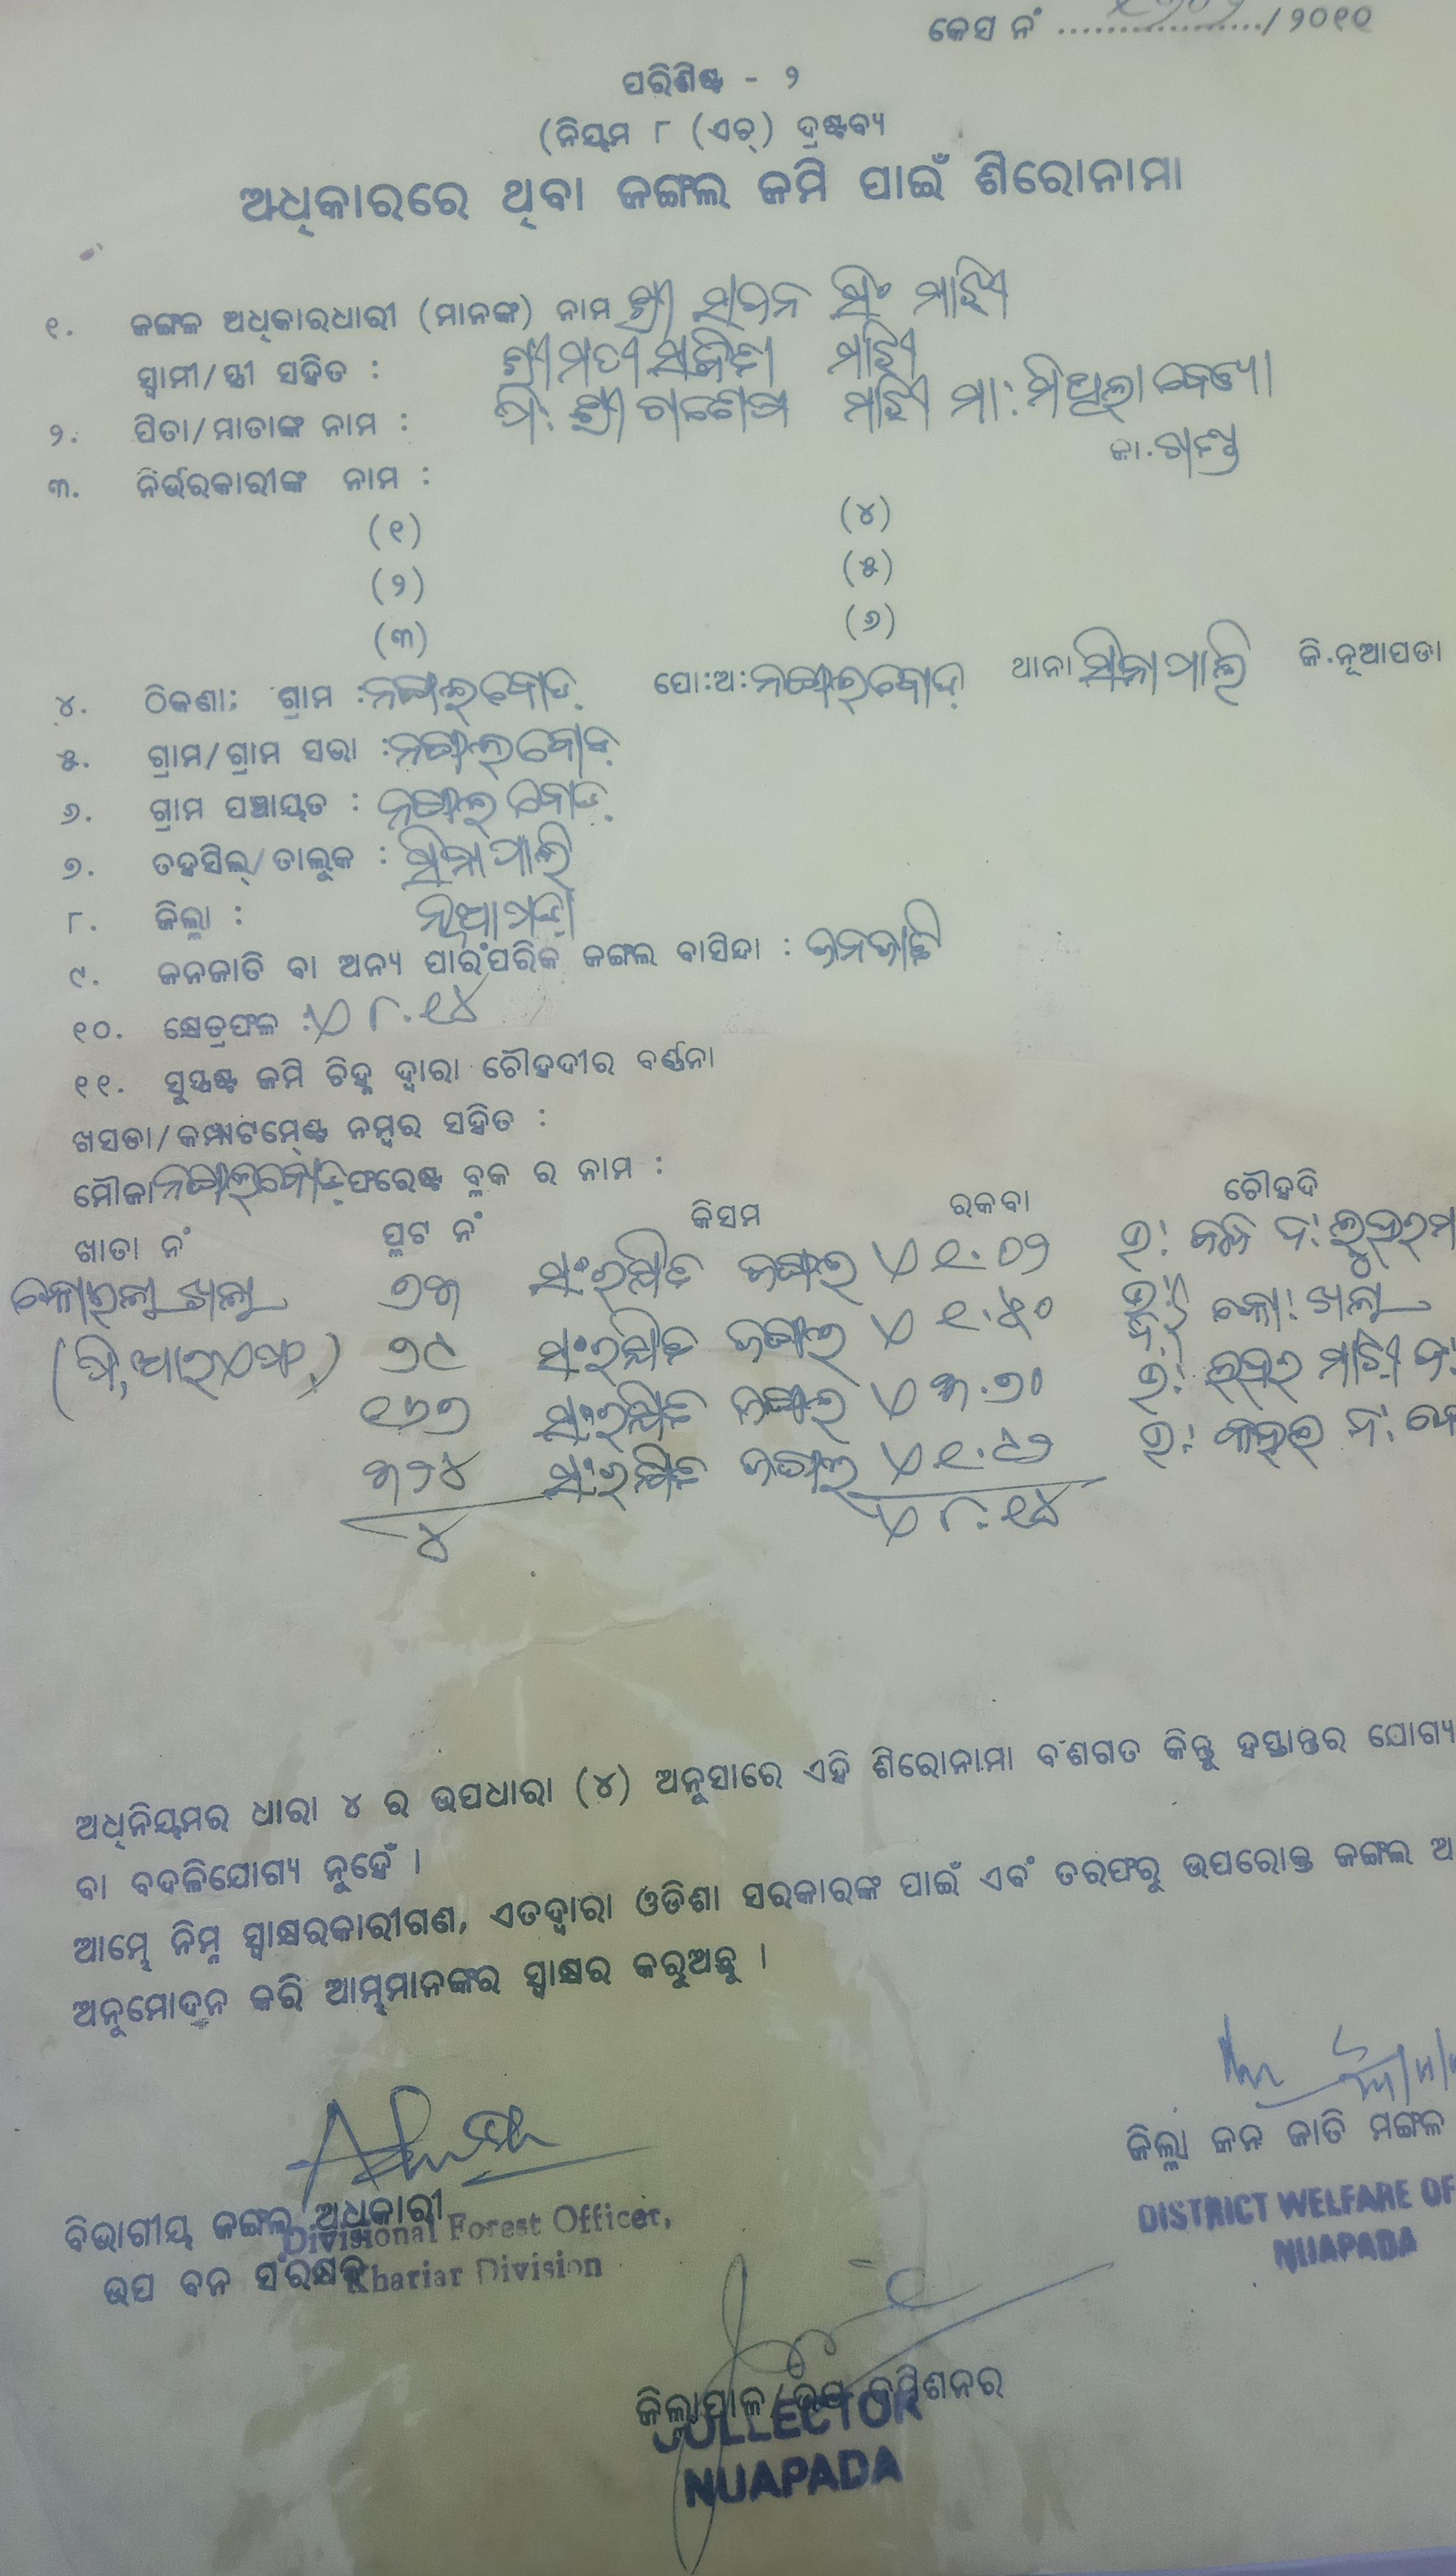 କେସ ନଂ ................../ ୨୦୧୧
ପରିଶିଷ୍ଟ - ୨
(ନିୟମ ୮ (ଏଚ୍) ଦ୍ରଷ୍ଟବ୍ୟ
ଅଧିକାରରେ ଥିବା ଜଙ୍ଗଲ ଜମି ପାଇଁ ଶିରୋନାମା
୧. ଜଙ୍ଗଲ ଅଧିକାରଧାରୀ (ମାନଙ୍କ) ନାମ ଶ୍ରୀ ସାଧନ ସିଂ ମାଝି
ସ୍ଵାମୀ/ସ୍ତ୍ରୀ ସହିତ : ଶ୍ରୀମତୀ ମାଝି
୨. ପିତା/ମାତାଙ୍କ ନାମ : ପି: ଶ୍ରୀ ଗଣେଷ ମାଝି ମା: ମିଥିଲା
ଜା.ଗଣ୍ଡ
୩. ନିର୍ଭରକାରୀଙ୍କ ନାମ :
(୧) (୪)
(୨) (୫)
(୩) (୬)
୪. ଠିକଣା: ଗ୍ରାମ : ନଙ୍ଗଲବୋଡ଼ ପୋ:ଅ: ନଙ୍ଗଲବୋଡ଼ ଥାନା ସିନାପାଲି ଜି.ନୂଆପଡା
୫. ଗ୍ରାମ/ଗ୍ରାମ ସଭା : ନଙ୍ଗଲବୋଡ଼
୬. ଗ୍ରାମ ପଞ୍ଚାୟତ : ନଙ୍ଗଲବୋଡ଼
୭. ତହସିଲ୍/ତାଲୁକ : ସିନାପାଲି
୮. ଜିଲ୍ଲା : ନୂଆପଡା
୯. ଜନଜାତି ବା ଅନ୍ୟ ପାରଂପରିକ ଜଙ୍ଗଲ ବାସିନ୍ଦା : ଜନଜାତି
୧୦. କ୍ଷେତ୍ରଫଳ : ୮.୧୪
୧୧. ସୁସ୍ପଷ୍ଟ ଜମି ଚିହ୍ନ ଦ୍ଵାରା ଚୌହଦୀର ବର୍ଣ୍ଣନା
ଖସଡା/କମ୍ପାଟମେଣ୍ଟ ନମ୍ବର ସହିତ :
ମୌଜା ନଙ୍ଗଲବୋଡ଼ ଫରେଷ୍ଟ ବ୍ଲକ ର ନାମ :
ଖାତା ନଂ ପ୍ଲଟ ନଂ କିସମ ରକବା ଚୌହଦି
୭୩ ସଂରକ୍ଷିତ ଜଙ୍ଗଲ ୧.୦୨
(ପି,ଆରଏଫ୍) ୭୯ ସଂରକ୍ଷିତ ଜଙ୍ଗଲ ୧.୫୦
୧୬୭ ସଂରକ୍ଷିତ ଜଙ୍ଗଲ ୩.୭୦
୩୨୪ ସଂରକ୍ଷିତ ଜଙ୍ଗଲ ୧.୯୨
୪ ୮.୧୪
ଅଧିନିୟମର ଧାରା ୪ ର ଉପଧାରା (୪) ଅନୁସାରେ ଏହି ଶିରୋନାମା ବଂଶଗତ କିନ୍ତୁ ହସ୍ତାନ୍ତର ଯୋଗ୍ୟ
ବା ବଦଳିଯୋଗ୍ୟ ନୁହେଁ ।
ଆମ୍ଭେ ନିମ୍ନ ସ୍ଵାକ୍ଷରକାରୀଗଣ, ଏତଦ୍ଵାରା ଓଡିଶା ସରକାରଙ୍କ ପାଇଁ ଏବଂ ତରଫରୁ ଉପରୋକ୍ତ ଜଙ୍ଗଲ ଅ
ଅନୁମୋଦନ କରି ଆମ୍ଭମାନଙ୍କର ସ୍ଵାକ୍ଷର କରୁଅଛୁ ।
ଜିଲ୍ଲା ଜନ ଜାତି ମଙ୍ଗଳ
DISTRICT WELFARE OF
NUAPADA
ବିଭାଗୀୟ ଜଙ୍ଗଲ ଅଧିକାରୀ
Divisional Forest Officer,
ଉପ ବନ ସଂରକ୍ଷକ
Khariar Division
ଜିଲ୍ଲାପାଳ/ଉପ କମିଶନର
COLLECTOR
NUAPADA